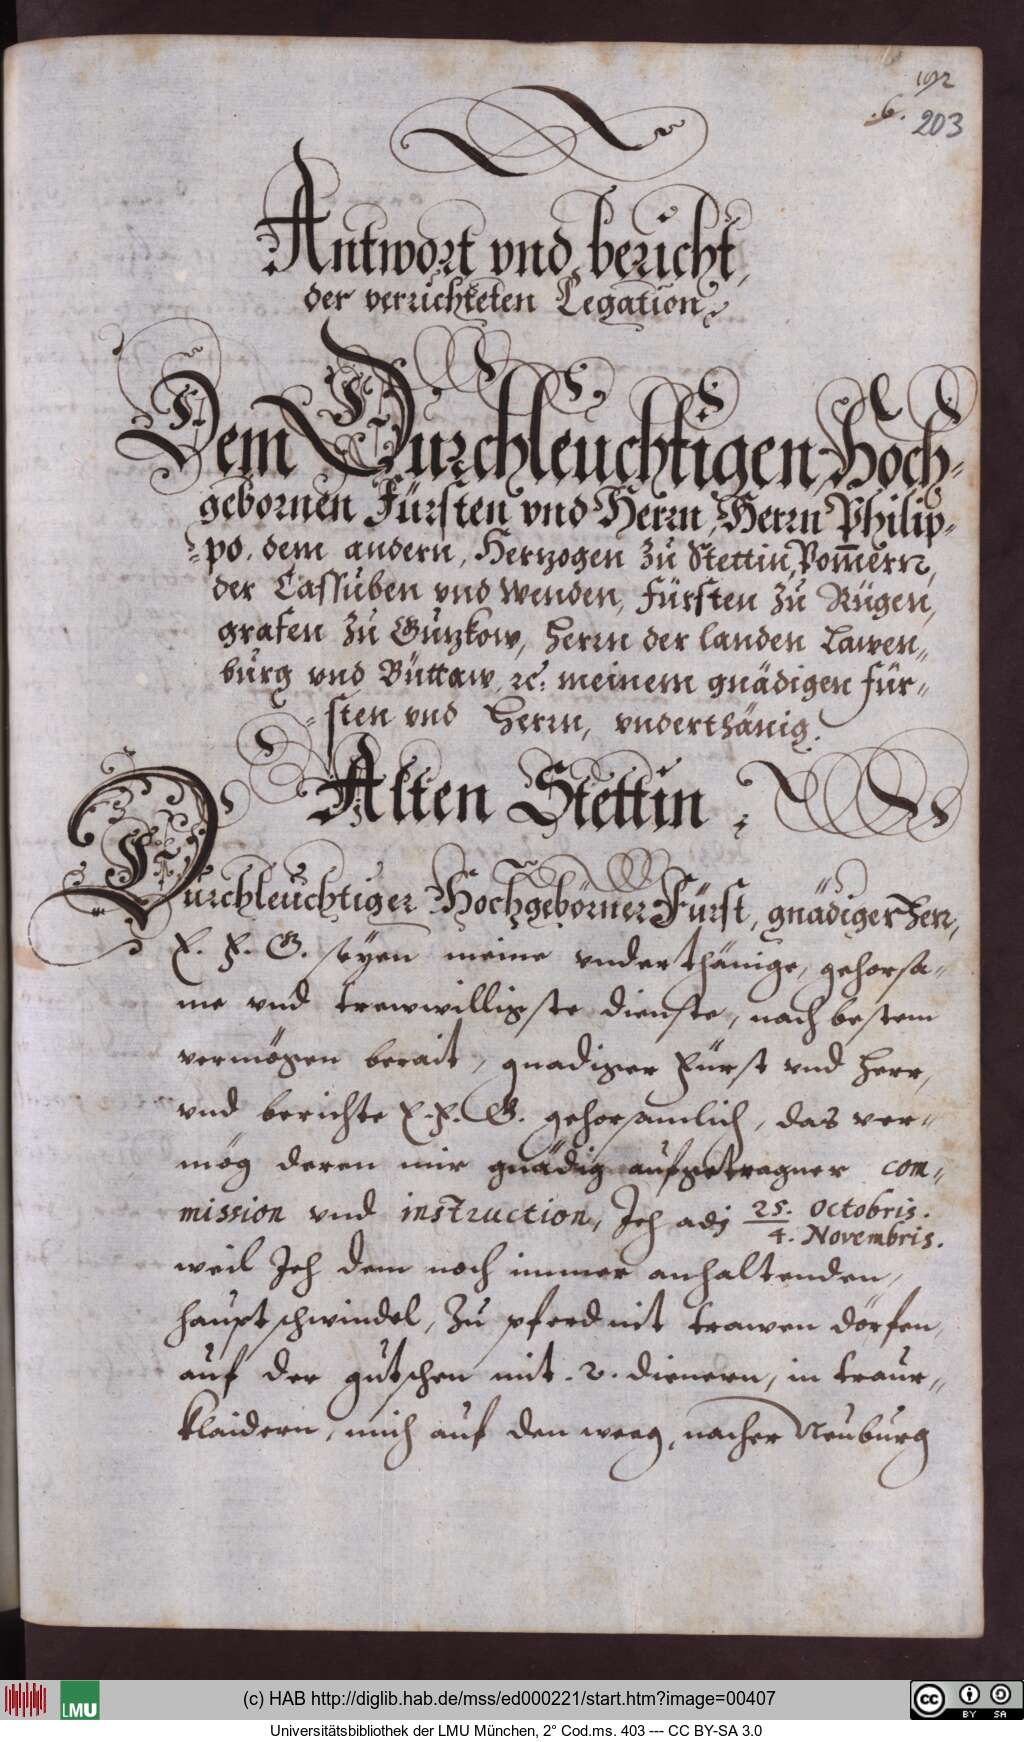 192
.6. 203
Antwort vnd bericht,
der verrichteten Legation
Dem Durchleuchtigen Hoch-
gebornen Fürsten vnd Herrn, Herrn Philip-
po, dem andern, Hertzogen zu Stettin, Pom̄ern,
der Cassuben vnd Wenden, Fürsten zu Rügen,
grafen zu Gutzkow, Herrn der landen Lawen-
burg vnd Büttaw, ꝛc. meinem gnädigen für-
sten vnd Herrn, vnderthänig.
Alten Stettin
Durchleuchtiger Hochgeborner Fürst, gnädiger Herr,
E. F. G. seyen meine vnderthänige, gehorsa-
me vnd trewwilligste dienste, nach bestem
vermögen berait, gnadiger Fürst vnd Herr,
vnd berichte E. F. G. gehorsamlich, das ver-
mög deren mir gnädig aufgetragner com-
mission vnd instruction, Ich adj 25. Octobris.
4. Novembris.
weil Ich dem noch immer anhaltenden,
hauptschwindel, zu pferd nit trawen dörfen,
auf der gutschen mit .2. dienern, in traur-
klaidern, mich auf den weeg, nacher Neuburg
(c) HAB http://diglib.hab.de/mss/ed000221/start.htm?image=00407
LMU
cc BY SA
Universitätsbibliothek der LMU München, 2° Cod.ms. 403 --- CC BY-SA 3.0